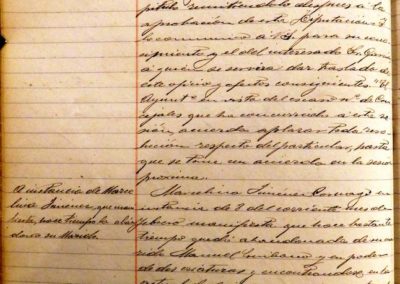 pítulo remitiendolo despues á la
aprobacion de esta Diputacion. Y
lo comunico á V.S. para su cono
cimiento y el del interesado Sr. Garcia
á quien se servira dar traslado de
este oficio y efectos consiguientes. "El
Ayunt.º en vista del escaso n.º de Con
cejales que ha concurrido á esta se
sión, acuerda aplazar toda reso
lucion respecto del particular, hasta
que se tome un acuerdo en la sesion
proxima.
A instancia de Marce
lina Jimenez, que mani
fiesta, hace tiempo la aban
donó su Marido.
Marcelina Jimenez en
instancia de 2 del corriente mes de
febrero manifiesta que hace bastante
tiempo quedó abandonada de su ma
rido Manuel y en poder
de dos criaturas y encontrandose en la